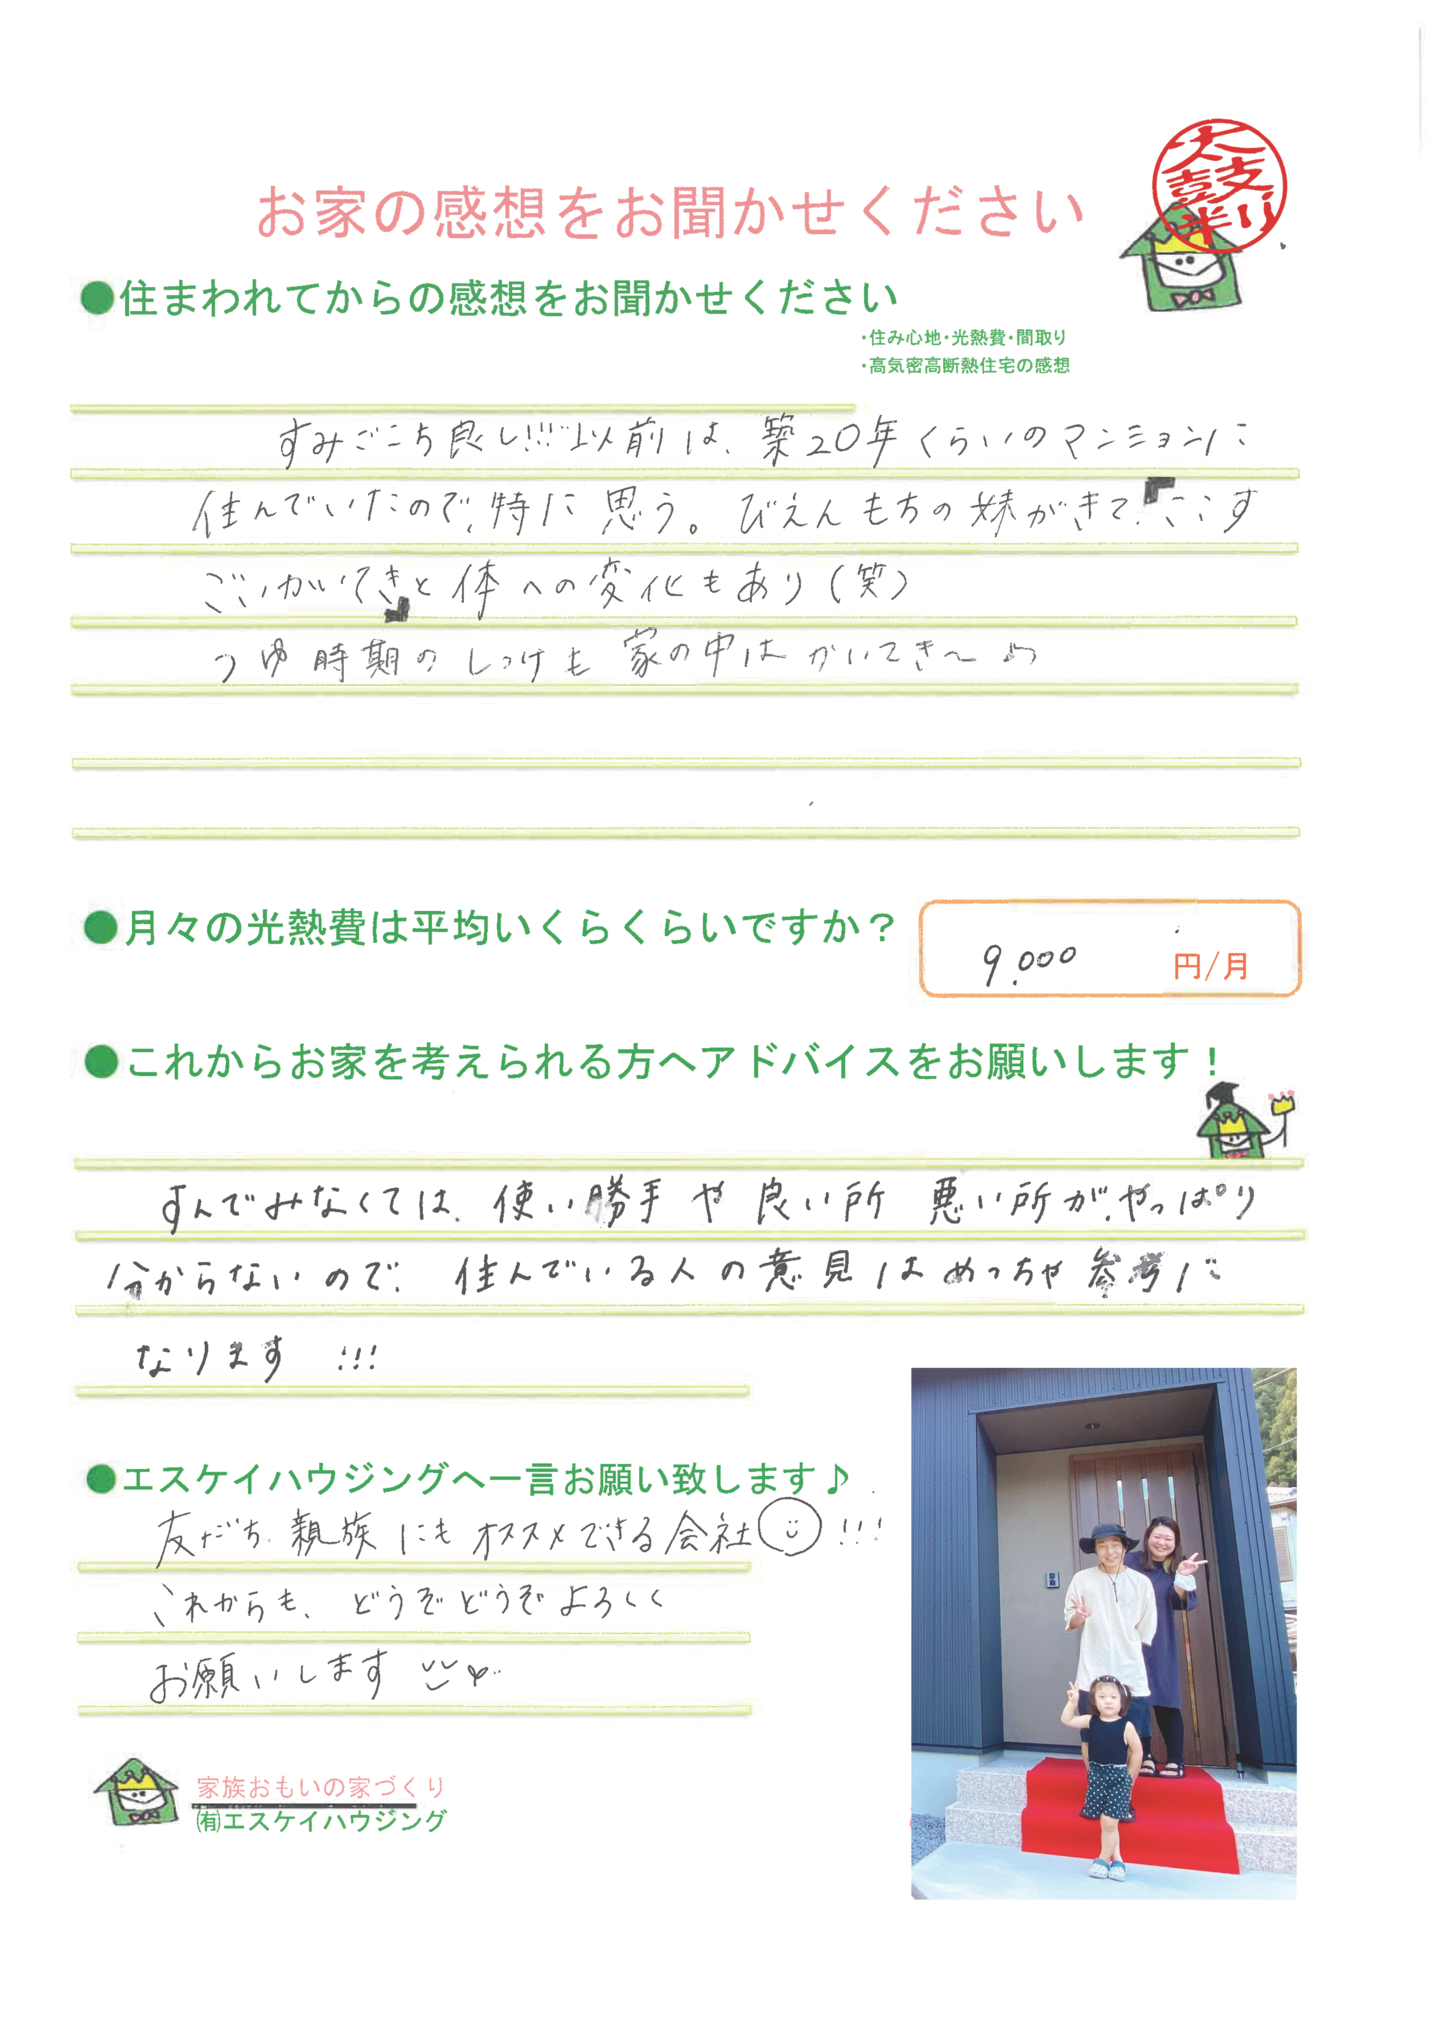 太鼓判
お家の感想をお聞かせください
●住まわれてからの感想をお聞かせください
・住み心地・光熱費・間取り
・高気密高断熱住宅の感想
すみごこち良し!!!以前は、築20年くらいのマンションに
住んでいたので、特に思う。びえんもちの妹がきて、「ここす
ごいかいてき」と体への変化もあり(笑)
つゆ時期のしっけも家の中はかいてき〜♪
●月々の光熱費は平均いくらくらいですか？
9.000 円/月
●これからお家を考えられる方へアドバイスをお願いします！
すんでみなくては、使い勝手や良い所 悪い所が、やっぱり
分からないので、住んでいる人の意見はめっちゃ参考に
なります !!!
●エスケイハウジングへ一言お願い致します♪
友だち、親族にもオススメできる会社☺!!!
これからも、どうぞどうぞよろしく
お願いします
家族おもいの家づくり
㈲エスケイハウジング